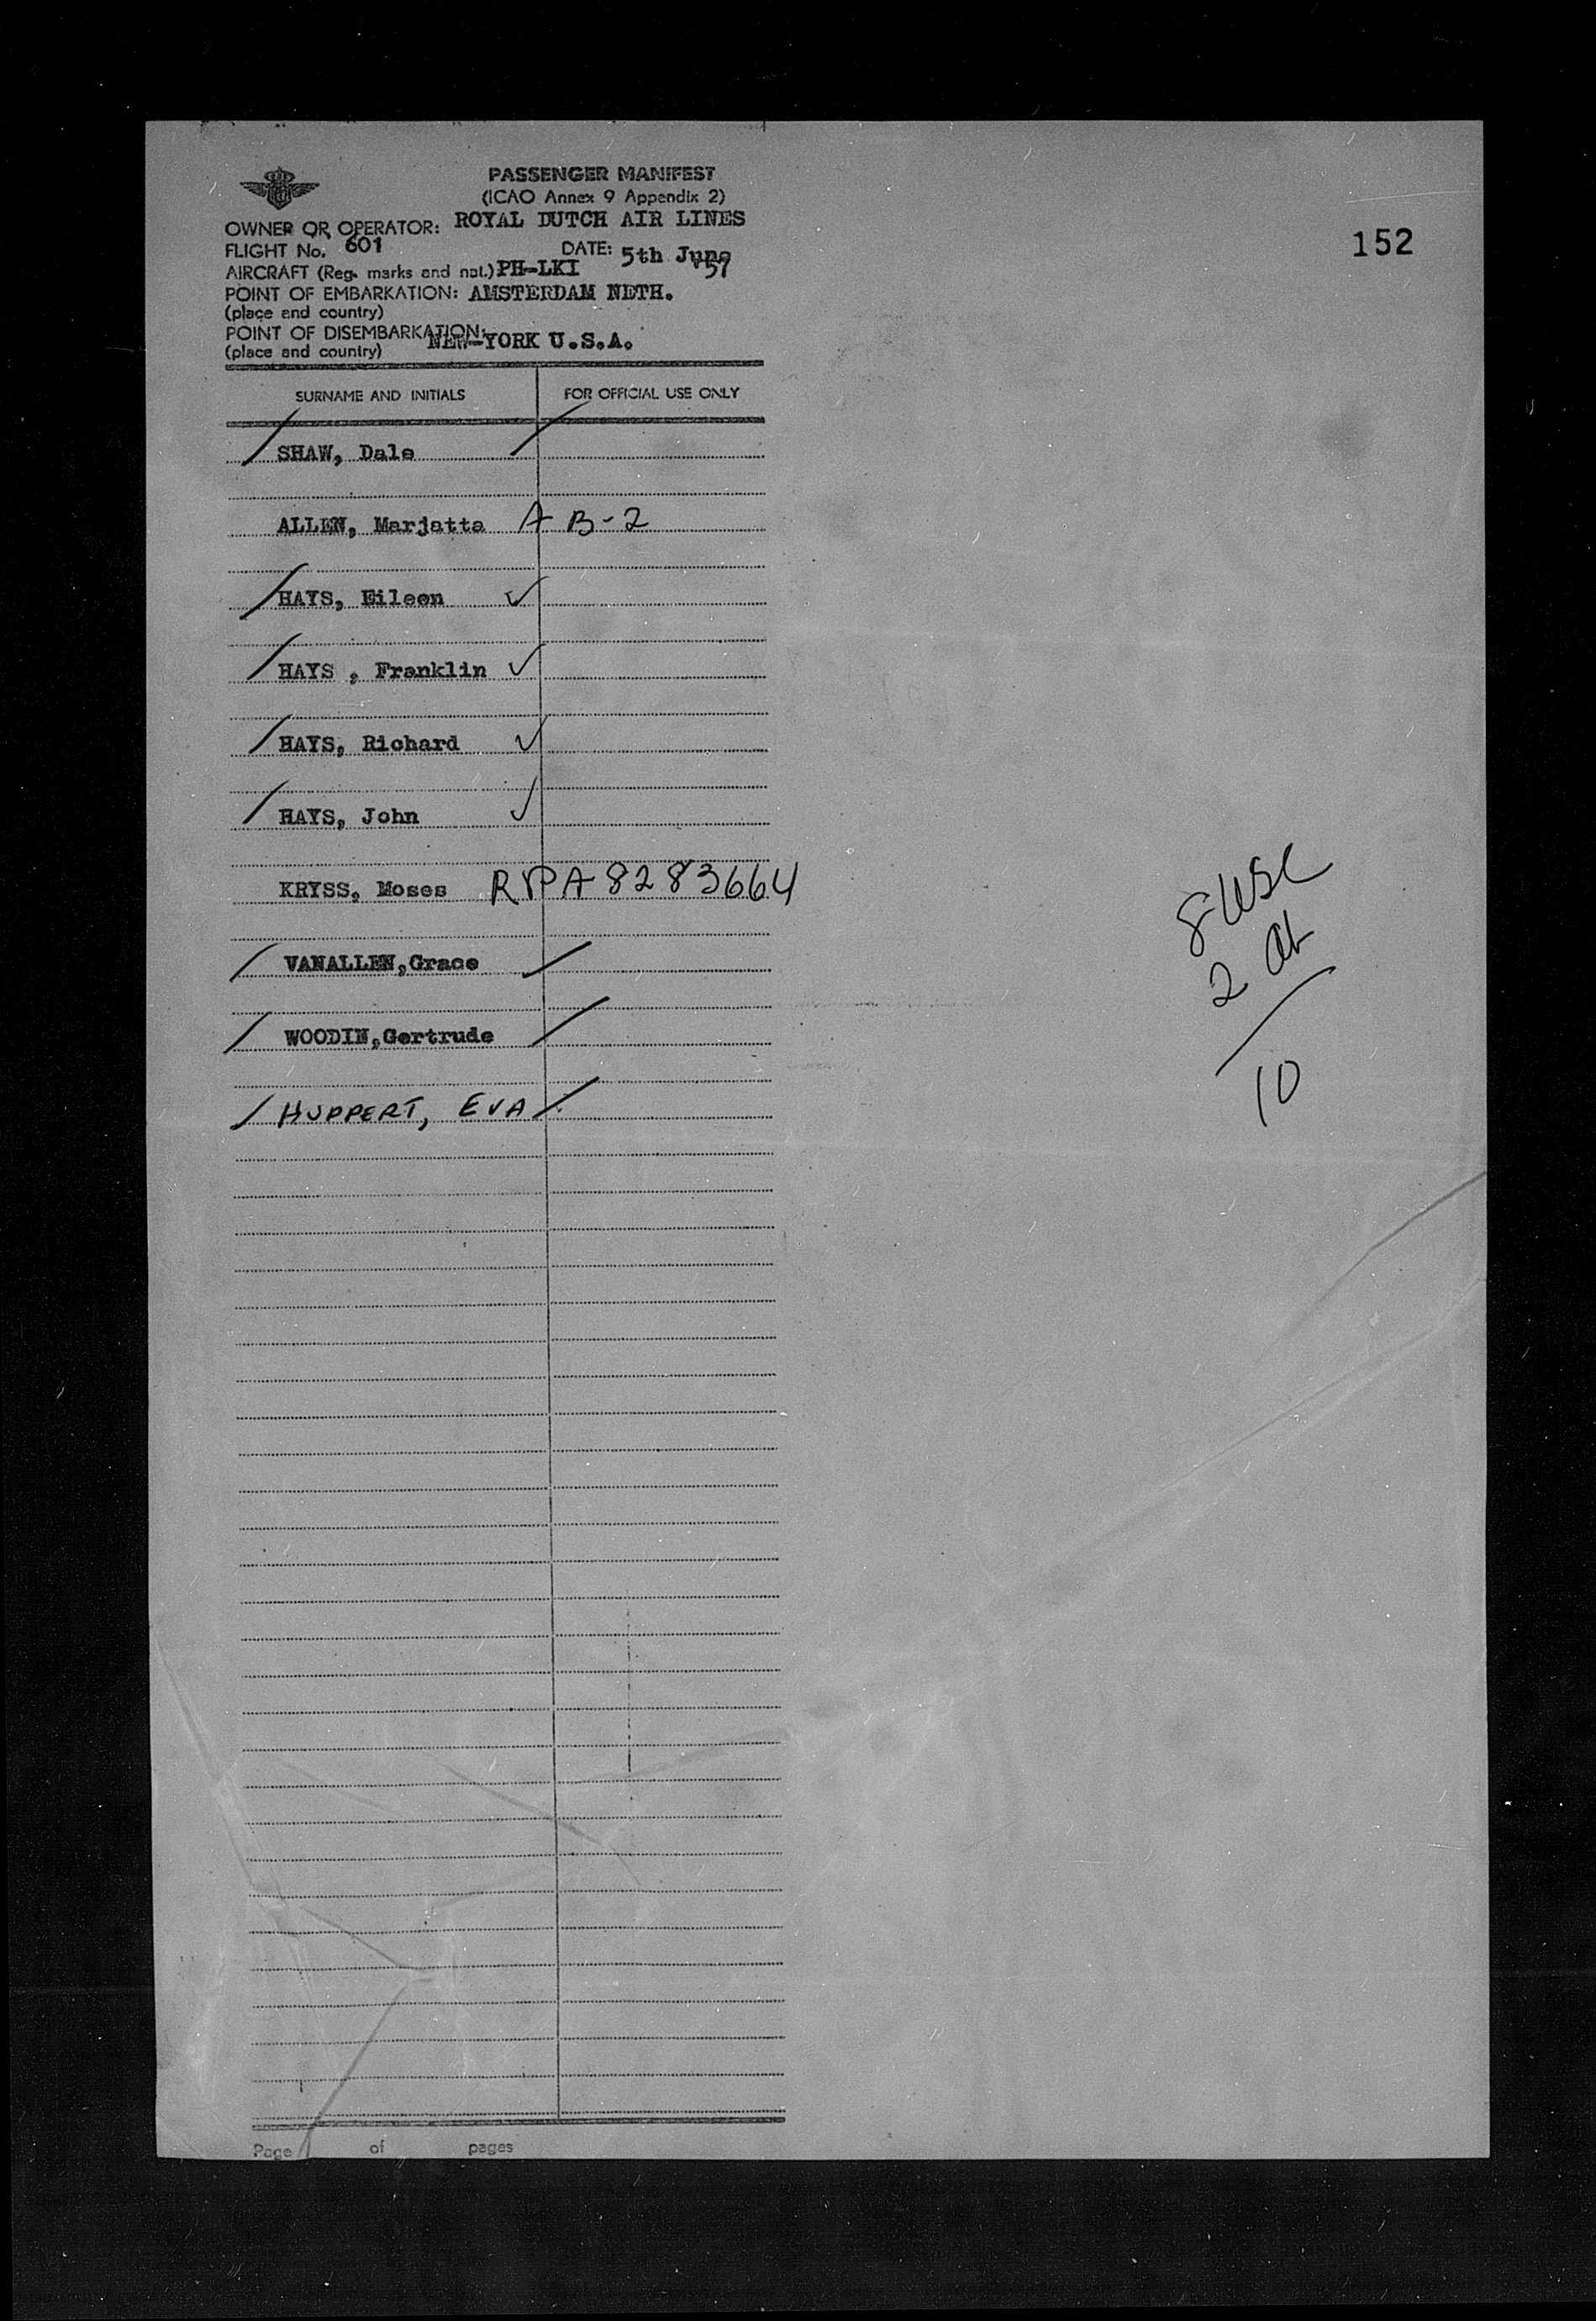 PASSENGER MANIFEST
(ICAO Annex 9 Appendix 2)
OWNER OR OPERATOR: ROYAL DUTCH AIR LINES
FLIGHT No. 601 DATE: 5th June '57
AIRCRAFT (Reg. marks and nat.) PH-LKI
POINT OF EMBARKATION: AMSTERDAM NETH.
(place and country)
POINT OF DISEMBARKATION: NEW-YORK U.S.A.
(place and country)
152
SURNAME AND INITIALS FOR OFFICIAL USE ONLY
SHAW, Dale
ALLEN, Marjatta A B-2
HAYS, Eileen
HAYS , Franklin
HAYS, Richard
HAYS, John
KRYSS, Moses RPA8283664
VANALLEN,Grace
WOODIN,Gertrude
HUPPERT, EVA
8 USC
2 al
10
Page of pages